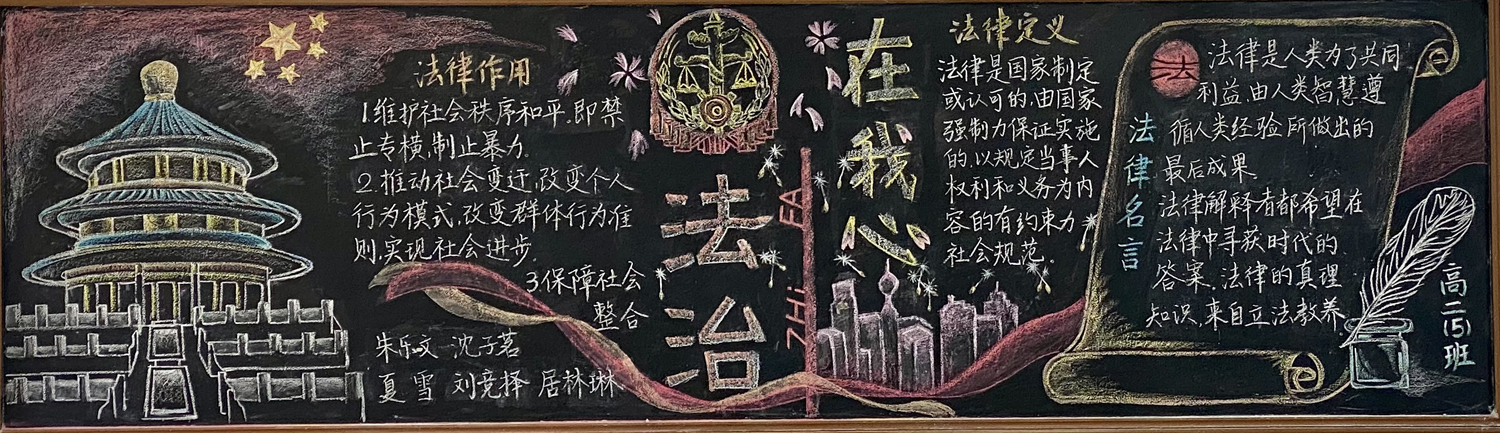 法律作用
1.维护社会秩序和平.即禁
止专横,制止暴力.
2.推动社会变迁,改变个人
行为模式,改变群体行为准
则,实现社会进步.
3.保障社会
整合
朱乐文 沈子茗
夏雪 刘竞择 居林琳
法治
FA
ZHi
在我心
法律定义
法律是国家制定
或认可的,由国家
强制力保证实施
的,以规定当事人
权利和义务为内
容的有约束力
社会规范。
法律名言
法
法律是人类为了共同
利益,由人类智慧遵
循人类经验所做出的
最后成果
法律解释者都希望在
法律中寻获时代的
答案.法律的真理
知识,来自立法教养
高二(5)班